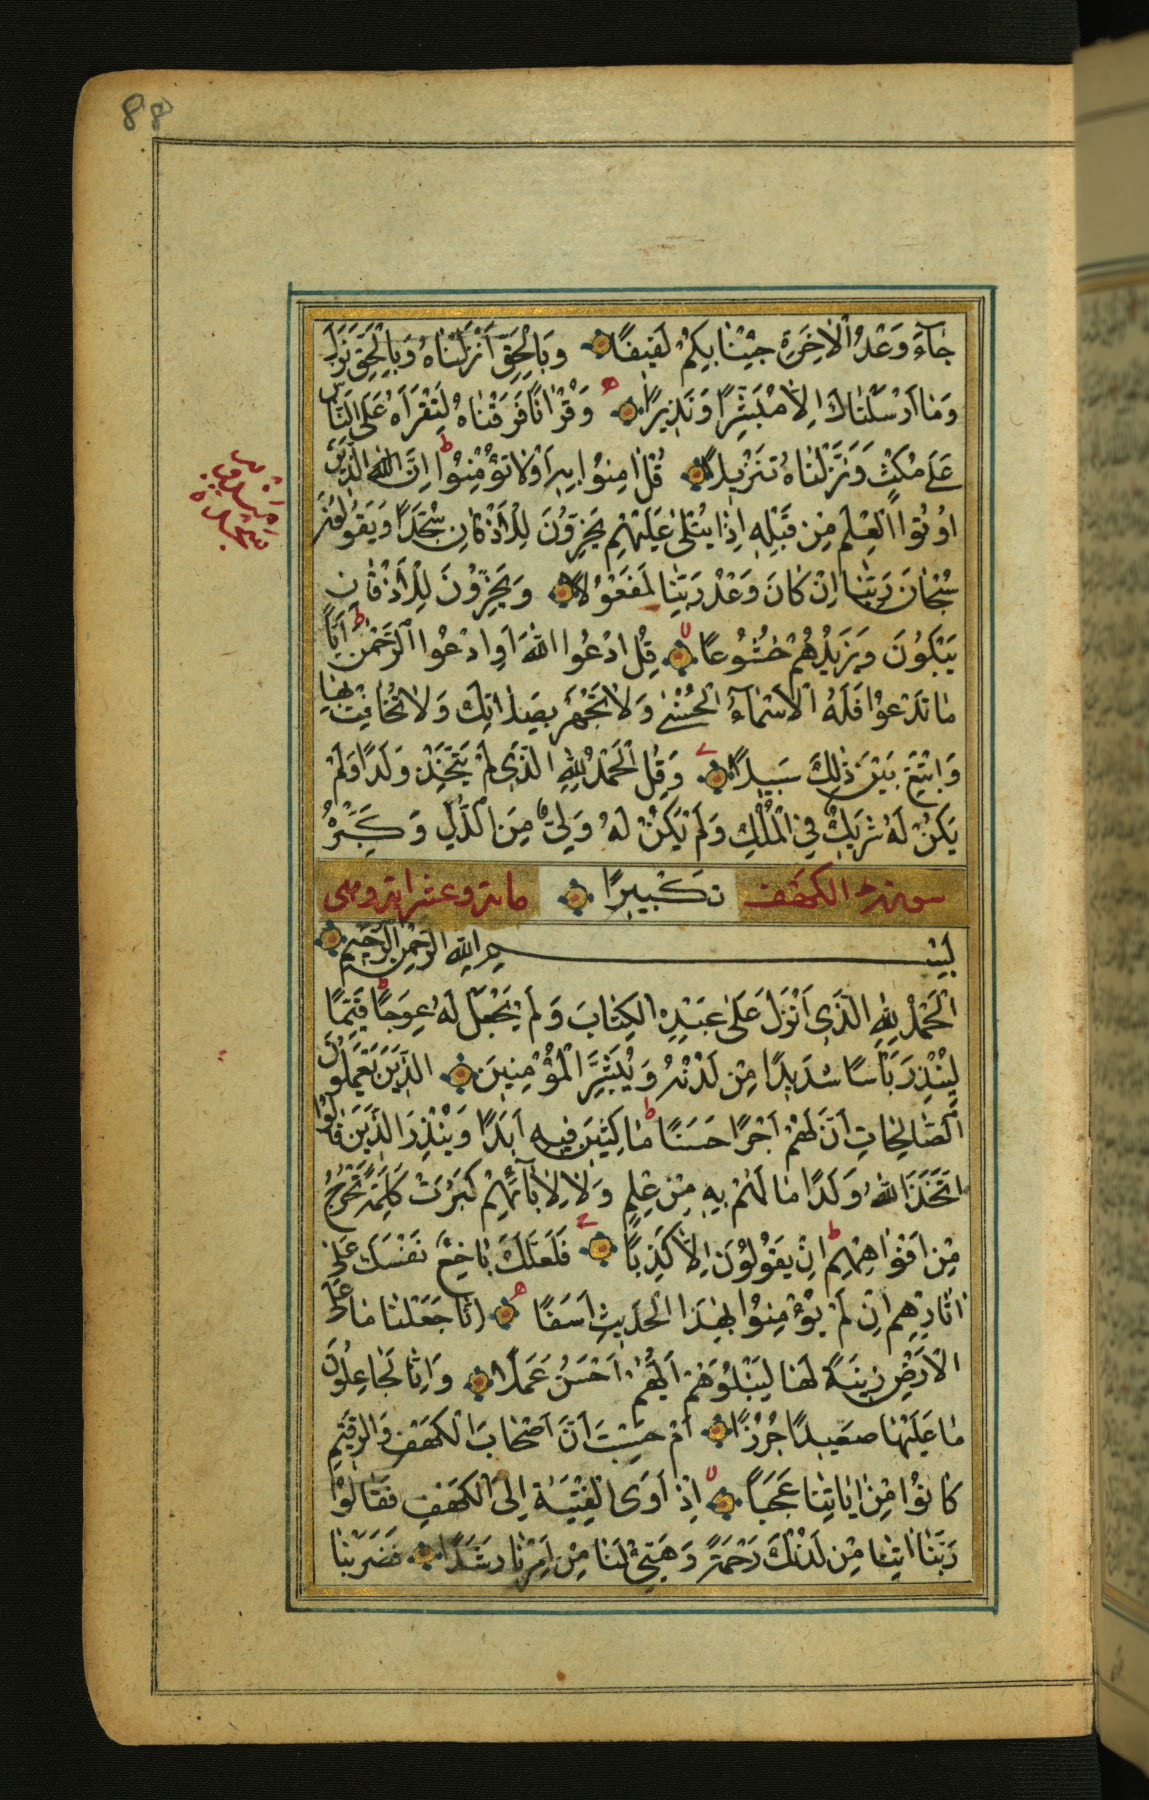 88
جَاۤءَ وَعْدُ الْاٰخِرَةِ جِئْنَا بِكُمْ لَفِيفًا وَبِالْحَقِّ اَنْزَلْنَاهُ وَبِالْحَقِّ نَزَلَ
وَمَا اَرْسَلْنَاكَ اِلَّا مُبَشِّرًا وَنَذِيرًا وَقُرْاٰنًا فَرَقْنَاهُ لِتَقْرَاَهُ عَلَى النَّاسِ
عَلٰى مُكْثٍ وَنَزَّلْنَاهُ تَنْزِيلًا قُلْ اٰمِنُوا بِهِ اَوْ لَا تُؤْمِنُوا اِنَّ الَّذِينَ
اُوتُوا الْعِلْمَ مِنْ قَبْلِهِ اِذَا يُتْلٰى عَلَيْهِمْ يَخِرُّونَ لِلْاَذْقَانِ سُجَّدًا وَيَقُولُونَ
سُبْحَانَ رَبِّنَا اِنْ كَانَ وَعْدُ رَبِّنَا لَمَفْعُولًا وَيَخِرُّونَ لِلْاَذْقَانِ
يَبْكُونَ وَيَزِيدُهُمْ خُشُوعًا قُلِ ادْعُوا اللّٰهَ اَوِ ادْعُوا الرَّحْمٰنَ اَيًّا
مَا تَدْعُوا فَلَهُ الْاَسْمَاۤءُ الْحُسْنٰى وَلَا تَجْهَرْ بِصَلَاتِكَ وَلَا تُخَافِتْ بِهَا
وَابْتَغِ بَيْنَ ذٰلِكَ سَبِيلًا وَقُلِ الْحَمْدُ لِلّٰهِ الَّذِي لَمْ يَتَّخِذْ وَلَدًا وَلَمْ
يَكُنْ لَهُ شَرِيكٌ فِي الْمُلْكِ وَلَمْ يَكُنْ لَهُ وَلِيٌّ مِنَ الذُّلِّ وَكَبِّرْهُ
سورة الكهف تَكْبِيرًا مائة وعشر اية وهى
بِسْمِ اللّٰهِ الرَّحْمٰنِ الرَّحِيمِ
اَلْحَمْدُ لِلّٰهِ الَّذِي اَنْزَلَ عَلٰى عَبْدِهِ الْكِتَابَ وَلَمْ يَجْعَلْ لَهُ عِوَجًا قَيِّمًا
لِيُنْذِرَ بَاْسًا شَدِيدًا مِنْ لَدُنْهُ وَيُبَشِّرَ الْمُؤْمِنِينَ الَّذِينَ يَعْمَلُونَ
الصَّالِحَاتِ اَنَّ لَهُمْ اَجْرًا حَسَنًا مَاكِثِينَ فِيهِ اَبَدًا وَيُنْذِرَ الَّذِينَ قَالُوا
اتَّخَذَ اللّٰهُ وَلَدًا مَا لَهُمْ بِهِ مِنْ عِلْمٍ وَلَا لِاٰبَاۤئِهِمْ كَبُرَتْ كَلِمَةً تَخْرُجُ
مِنْ اَفْوَاهِهِمْ اِنْ يَقُولُونَ اِلَّا كَذِبًا فَلَعَلَّكَ بَاخِعٌ نَفْسَكَ عَلٰى
اٰثَارِهِمْ اِنْ لَمْ يُؤْمِنُوا بِهٰذَا الْحَدِيثِ اَسَفًا اِنَّا جَعَلْنَا مَا عَلَى
الْاَرْضِ زِينَةً لَهَا لِنَبْلُوَهُمْ اَيُّهُمْ اَحْسَنُ عَمَلًا وَاِنَّا لَجَاعِلُونَ
مَا عَلَيْهَا صَعِيدًا جُرُزًا اَمْ حَسِبْتَ اَنَّ اَصْحَابَ الْكَهْفِ وَالرَّقِيمِ
كَانُوا مِنْ اٰيَاتِنَا عَجَبًا اِذْ اَوَى الْفِتْيَةُ اِلَى الْكَهْفِ فَقَالُوا
رَبَّنَا اٰتِنَا مِنْ لَدُنْكَ رَحْمَةً وَهَيِّئْ لَنَا مِنْ اَمْرِنَا رَشَدًا فَضَرَبْنَا